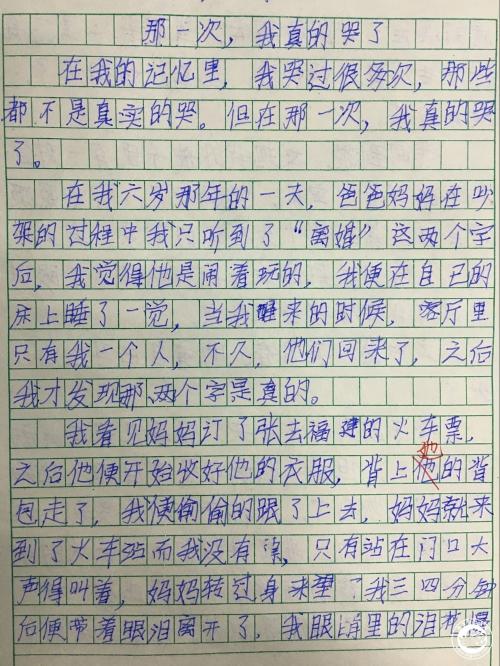 那一次，我真的哭了
在我的记忆里，我哭过很多次，那些
都不是真实的哭。但在那一次，我真的哭
了。
在我六岁那年的一天，爸爸妈妈在吵
架的过程中我只听到了“离婚”这两个字
后，我觉得他是闹着玩的，我便在自己的
床上睡了一觉，当我醒来的时候，客厅里
只有我一个人，不久，他们回来了，之后
我才发现那两个字是真的。
我看见妈妈订了张去福建的火车票，
她
之后他便开始收好他的衣服，背上他的背
包走了，我便偷偷的跟了上去，妈妈就来
到了火车站而我没有票，只有站在门口大
声得叫着，妈妈转过身来望了我三四分钟
后便带着眼泪离开了，我眼睛里的泪